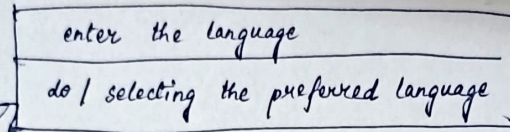 enter the language
do / selecting the preferred language